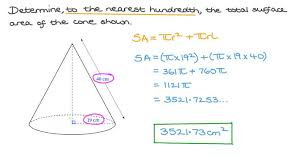 Determine, to the nearest hundredth, the total surface
area of the cone shown.
SA = πr² + πrL
SA = (π×19²) + (π×19×40)
= 361π + 760π
= 1121π
= 3521.7253...
3521.73cm²
40 cm
19 cm